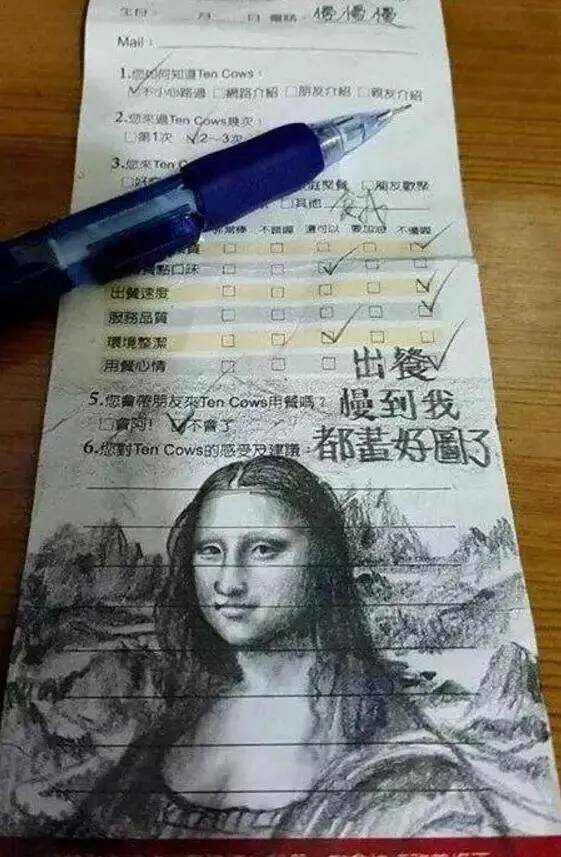 生日：　月　日 電話：慢慢慢
Mail：
1.您如何知道Ten Cows：
☑不小心路過 □網路介紹 □朋友介紹 □親友介紹
2.您來過Ten Cows幾次：
□第1次 ☑2～3次
3.您來Ten C
庭聚餐 □朋友歡聚
□其他
非常棒 不錯喔 還可以 要加油 不優喔
餐點口味
出餐速度
服務品質
環境整潔
用餐心情
出餐
慢到我
都畫好圖了
5.您會帶朋友來Ten Cows用餐嗎？
□會阿! ☑不會了
6.您對Ten Cows的感受及建議：